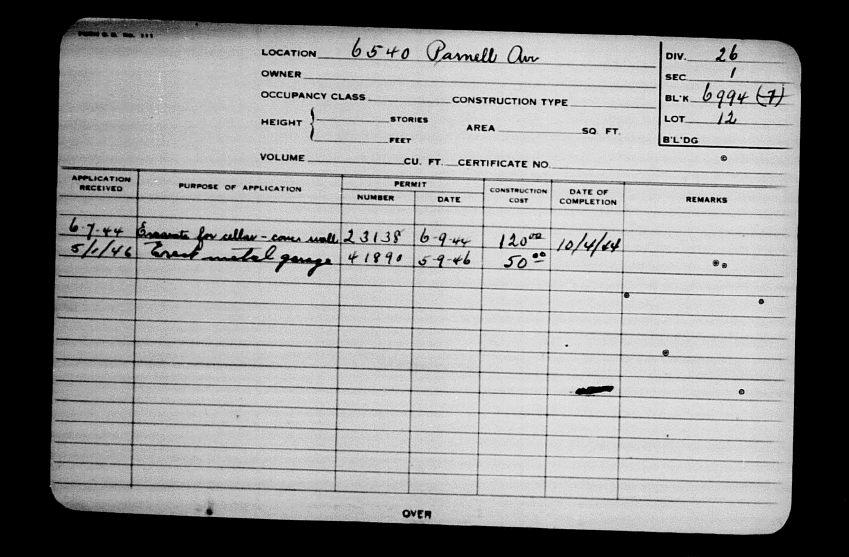 FORM O.B. NO. 111
LOCATION 6540 Parnell Av
DIV. 26
OWNER
SEC. 1
OCCUPANCY CLASS CONSTRUCTION TYPE
BL'K 6994 (7)
HEIGHT { STORIES
FEET
AREA SQ. FT.
LOT 12
B'L'DG
VOLUME CU. FT. CERTIFICATE NO.
APPLICATION RECEIVED PURPOSE OF APPLICATION PERMIT NUMBER DATE CONSTRUCTION COST DATE OF COMPLETION REMARKS
6-7-44 Excavate for cellar - cover wall 23138 6-9-44 120 00 10/4/44
5/1/46 Erect metal garage 41890 5-9-46 50 00
OVER